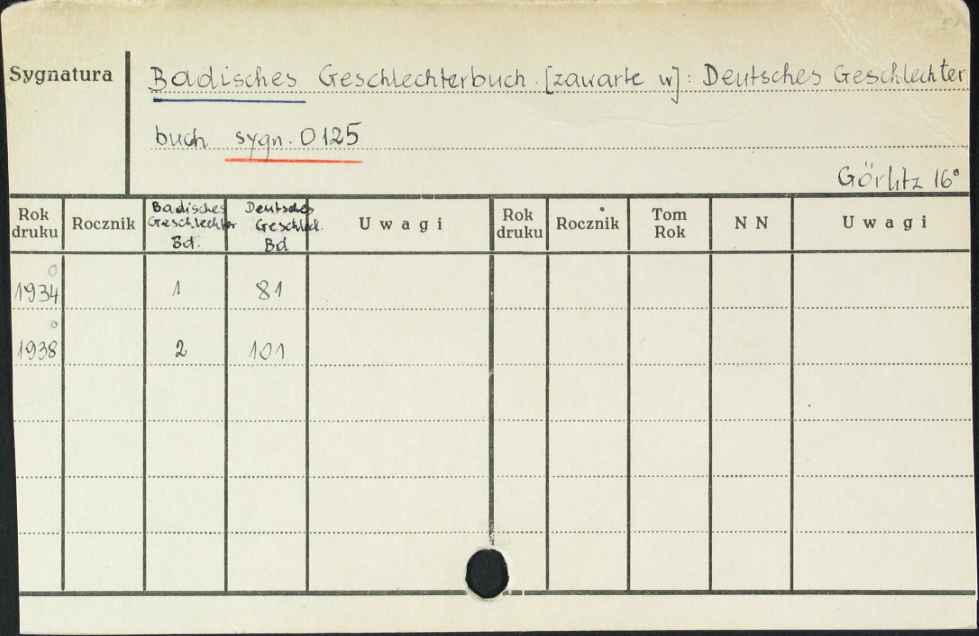 Sygnatura
Badisches Geschlechterbuch. [zawarte w]: Deutsches Geschlechter
buch sygn. O 125
Görlitz 16°
Rok druku Rocznik Badisches Geschlechter Bd. Deutsches Geschlech. Bd Uwagi Rok druku Rocznik Tom Rok NN Uwagi
1934 1 81
1938 2 101